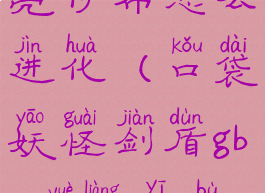 布
jìn huà kǒu dài
进化(口袋
yāo guài jiàn dùn
妖怪剑盾gb
yuè liàng yī bù